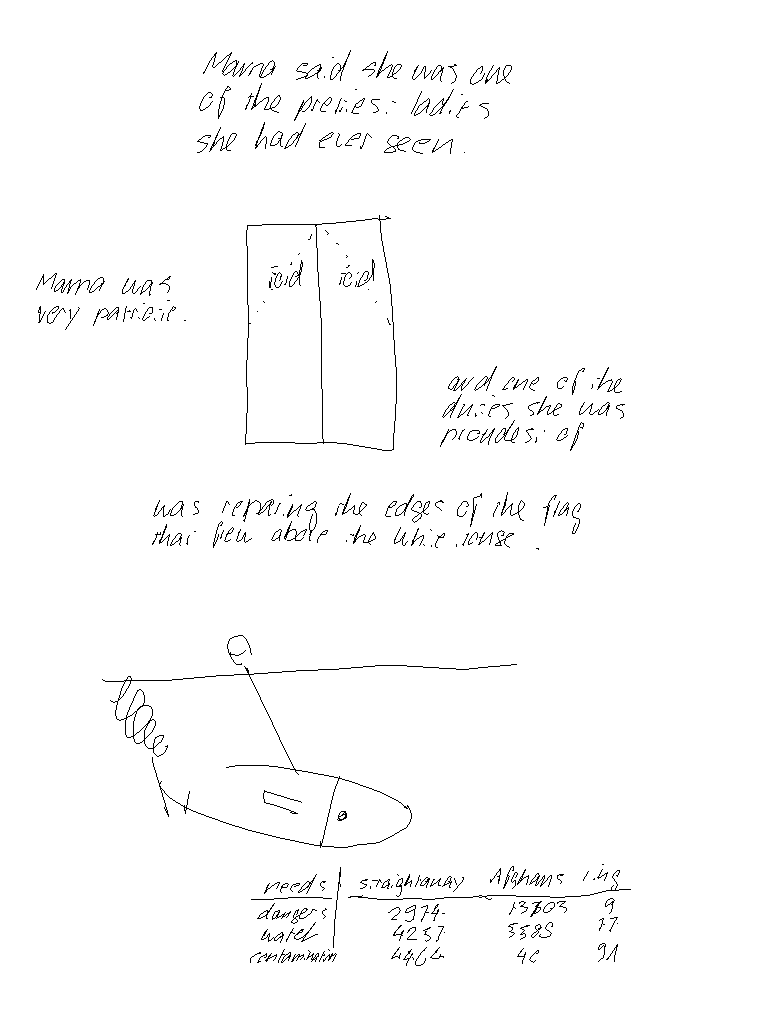 Mama said she was one
of the prettiest ladies
she had ever seen.
fold fold
Mama was
very patriotic.
and one of the
duties she was
proudest of
was repairing the edges of the flag
that flew above the White House.
needs straightaway Afghans ring
dangers 2974 9
water 4237 5385 17
contamination 4464 40 91